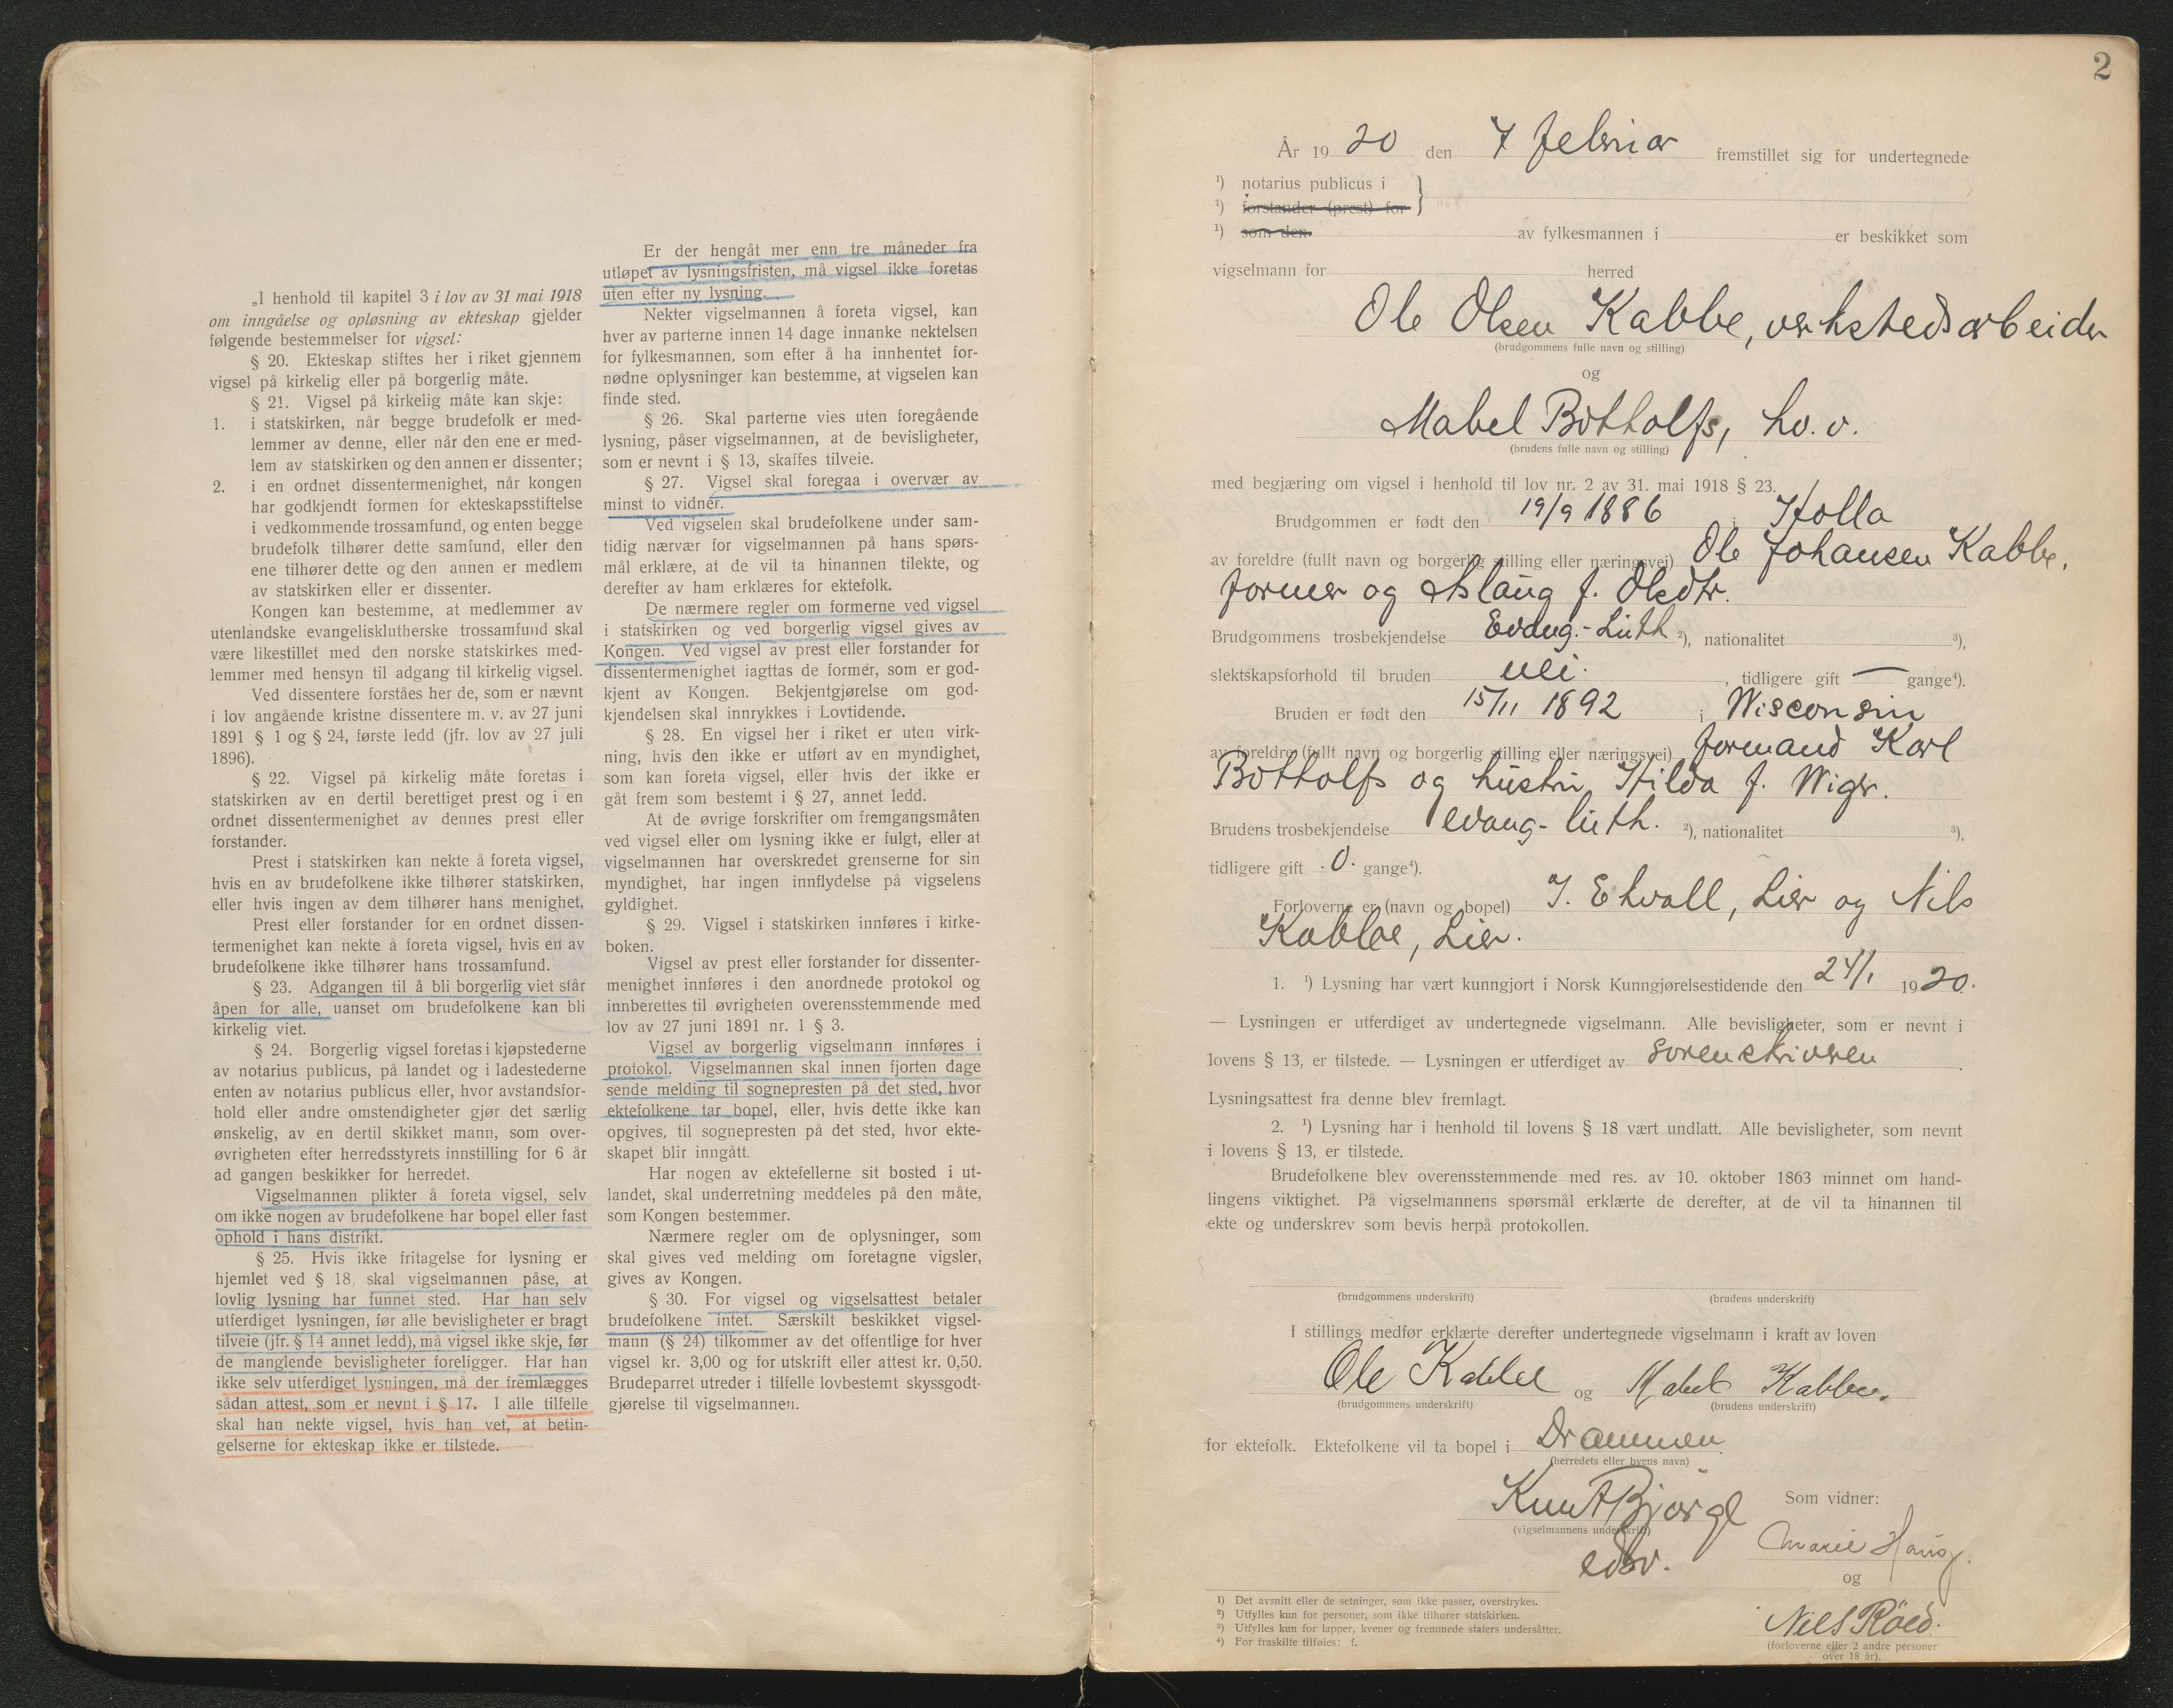 „I henhold til kapitel 3 i lov av 31 mai 1918
om inngåelse og opløsning av ekteskap gjelder
følgende bestemmelser for vigsel:
§ 20. Ekteskap stiftes her i riket gjennem
vigsel på kirkelig eller på borgerlig måte.
§ 21. Vigsel på kirkelig måte kan skje:
1. i statskirken, når begge brudefolk er med-
lemmer av denne, eller når den ene er med-
lem av statskirken og den annen er dissenter;
2. i en ordnet dissentermenighet, når kongen
har godkjendt formen for ekteskapsstiftelse
i vedkommende trossamfund, og enten begge
brudefolk tilhører dette samfund, eller den
ene tilhører dette og den annen er medlem
av statskirken eller er dissenter.
Kongen kan bestemme, at medlemmer av
utenlandske evangelisklutherske trossamfund skal
være likestillet med den norske statskirkes med-
lemmer med hensyn til adgang til kirkelig vigsel.
Ved dissentere forståes her de, som er nævnt
i lov angående kristne dissentere m. v. av 27 juni
1891 § 1 og § 24, første ledd (jfr. lov av 27 juli
1896).
§ 22. Vigsel på kirkelig måte foretas i
statskirken av en dertil berettiget prest og i en
ordnet dissentermenighet av dennes prest eller
forstander.
Prest i statskirken kan nekte å foreta vigsel,
hvis en av brudefolkene ikke tilhører statskirken,
eller hvis ingen av dem tilhører hans menighet,
Prest eller forstander for en ordnet dissen-
termenighet kan nekte å foreta vigsel, hvis en av
brudefolkene ikke tilhører hans trossamfund.
§ 23. Adgangen til å bli borgerlig viet står
åpen for alle, uanset om brudefolkene kan bli
kirkelig viet.
§ 24. Borgerlig vigsel foretas i kjøpstederne
av notarius publicus, på landet og i ladestederne
enten av notarius publicus eller, hvor avstandsfor-
hold eller andre omstendigheter gjør det særlig
ønskelig, av en dertil skikket mann, som over-
øvrigheten efter herredsstyrets innstilling for 6 år
ad gangen beskikker for herredet.
Vigselmannen plikter å foreta vigsel, selv
om ikke nogen av brudefolkene har bopel eller fast
ophold i hans distrikt.
§ 25. Hvis ikke fritagelse for lysning er
hjemlet ved § 18, skal vigselmannen påse, at
lovlig lysning har funnet sted. Har han selv
utferdiget lysningen, før alle bevisligheter er bragt
tilveie (jfr. § 14 annet ledd), må vigsel ikke skje, før
de manglende bevisligheter foreligger. Har han
ikke selv utferdiget lysningen, må der fremlægges
sådan attest, som er nevnt i § 17. I alle tilfelle
skal han nekte vigsel, hvis han vet, at betin-
gelserne for ekteskap ikke er tilstede.
Er der hengåt mer enn tre måneder fra
utløpet av lysningsfristen, må vigsel ikke foretas
uten efter ny lysning.
Nekter vigselmannen å foreta vigsel, kan
hver av parterne innen 14 dage innanke nektelsen
for fylkesmannen, som efter å ha innhentet for-
nødne oplysninger kan bestemme, at vigselen kan
finde sted.
§ 26. Skal parterne vies uten foregående
lysning, påser vigselmannen, at de bevisligheter,
som er nevnt i § 13, skaffes tilveie.
§ 27. Vigsel skal foregaa i overvær av
minst to vidner.
Ved vigselen skal brudefolkene under sam-
tidig nærvær for vigselmannen på hans spørs-
mål erklære, at de vil ta hinannen tilekte, og
derefter av ham erklæres for ektefolk.
De nærmere regler om formerne ved vigsel
i statskirken og ved borgerlig vigsel gives av
Kongen. Ved vigsel av prest eller forstander for
dissentermenighet iagttas de former, som er god-
kjent av Kongen. Bekjentgjørelse om god-
kjendelsen skal innrykkes i Lovtidende.
§ 28. En vigsel her i riket er uten virk-
ning, hvis den ikke er utført av en myndighet,
som kan foreta vigsel, eller hvis der ikke er
gåt frem som bestemt i § 27, annet ledd.
At de øvrige forskrifter om fremgangsmåten
ved vigsel eller om lysning ikke er fulgt, eller at
vigselmannen har overskredet grenserne for sin
myndighet, har ingen innflydelse på vigselens
gyldighet.
§ 29. Vigsel i statskirken innføres i kirke-
boken.
Vigsel av prest eller forstander for dissenter-
menighet innføres i den anordnede protokol og
innberettes til øvrigheten overensstemmende med
lov av 27 juni 1891 nr. 1 § 3.
Vigsel av borgerlig vigselmann innføres i
protokol. Vigselmannen skal innen fjorten dage
sende melding til sognepresten på det sted, hvor
ektefolkene tar bopel, eller, hvis dette ikke kan
opgives, til sognepresten på det sted, hvor ekte-
skapet blir inngått.
Har nogen av ektefellerne sit bosted i ut-
landet, skal underretning meddeles på den måte,
som Kongen bestemmer.
Nærmere regler om de oplysninger, som
skal gives ved melding om foretagne vigsler,
gives av Kongen.
§ 30. For vigsel og vigselsattest betaler
brudefolkene intet. Særskilt beskikket vigsel-
mann (§ 24) tilkommer av det offentlige for hver
vigsel kr. 3,00 og for utskrift eller attest kr. 0,50.
Brudeparret utreder i tilfelle lovbestemt skyssgodt-
gjørelse til vigselmannen.
2
År 1920 den 7 februar fremstillet sig for undertegnede
¹) notarius publicus i
¹) forstander (prest) for
¹) som den av fylkesmannen i er beskikket som
vigselmann for herred
Ole Olsen Kabbe, verkstedsarbeider
(brudgommens fulle navn og stilling)
og
Mabel Bottolfs, hv. v.
(brudens fulle navn og stilling)
med begjæring om vigsel i henhold til lov nr. 2 av 31. mai 1918 § 23.
Brudgommen er født den 19/9 1886 i Holla
av foreldre (fullt navn og borgerlig stilling eller næringsvei) Ole Johansen Kabbe,
former og Aslaug f. Olsdtr.
Brudgommens trosbekjendelse Evang.-Luth ²), nationalitet ³),
slektskapsforhold til bruden nei. , tidligere gift — gange⁴).
Bruden er født den 15/11 1892 i Wisconsin
av foreldre (fullt navn og borgerlig stilling eller næringsvei) formand Karl
Bottolfs og hustru Hilda f. Wiger.
Brudens trosbekjendelse evang-luth. ²), nationalitet ³),
tidligere gift .0. gange⁴).
Forloverne er (navn og bopel) J. Ekvall, Lier og Nils
Kabbe, Lier.
1. ¹) Lysning har vært kunngjort i Norsk Kunngjørelsestidende den 24/1 1920.
— Lysningen er utferdiget av undertegnede vigselmann. Alle bevisligheter, som er nevnt i
lovens § 13, er tilstede. — Lysningen er utferdiget av sorenskriveren
Lysningsattest fra denne blev fremlagt.
2. ¹) Lysning har i henhold til lovens § 18 vært undlatt. Alle bevisligheter, som nevnt
i lovens § 13, er tilstede.
Brudefolkene blev overensstemmende med res. av 10. oktober 1863 minnet om hand-
lingens viktighet. På vigselmannens spørsmål erklærte de derefter, at de vil ta hinannen til
ekte og underskrev som bevis herpå protokollen.
(brudgommens underskrift) (brudens underskrift)
I stillings medfør erklærte derefter undertegnede vigselmann i kraft av loven
Ole Kabbe og Mabel Kabbe.
(brudgommens underskrift) (brudens underskrift)
for ektefolk. Ektefolkene vil ta bopel i Drammen
(herredets eller byens navn)
Knut Bjørge
(vigselmannens underskrift)
edsv.
Som vidner:
Marie Haug.
og
Nils Röed.
(forloverne eller 2 andre personer
over 18 år).
¹) Det avsnitt eller de setninger, som ikke passer, overstrykes.
²) Utfylles kun for personer, som ikke tilhører statskirken.
³) Utfylles kun for lapper, kvener og fremmede staters undersåtter.
⁴) For fraskilte tilføies: f.